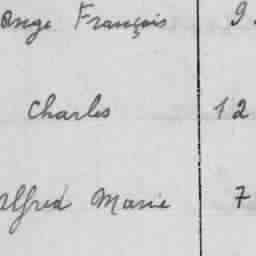 Ange François 9
Charles 12
Alfred Marie 7